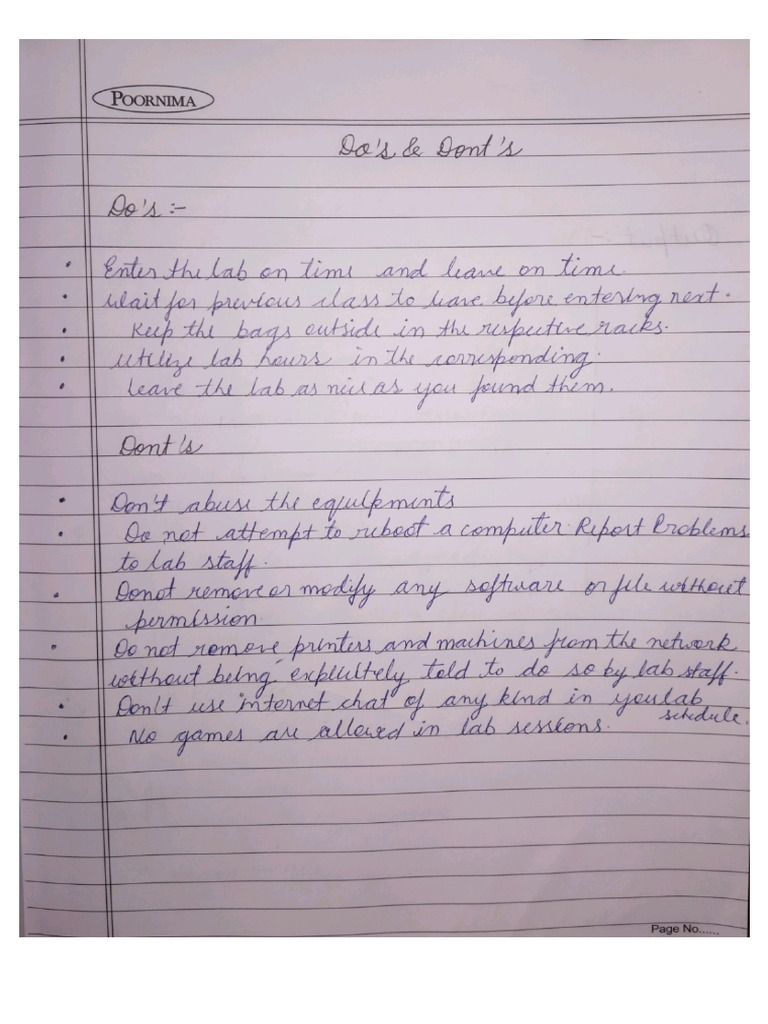 POORNIMA
Do's & Dont's
Do's :-
• Enter the lab on time and leave on time.
• Wait for previous class to leave before entering next.
• Keep the bags outside in the respective racks.
• Utilize lab hours in the corresponding.
• Leave the lab as nice as you found them.
Dont's
• Don't abuse the equipments
• Do not attempt to reboot a computer. Report Problems
to lab staff.
• Donot remove or modify any software or file without
permission.
• Do not remove printers and machines from the network
without being explicitely told to do so by lab staff.
• Don't use internet chat of any kind in you lab
schedule.
• No games are allowed in lab sessions.
Page No......